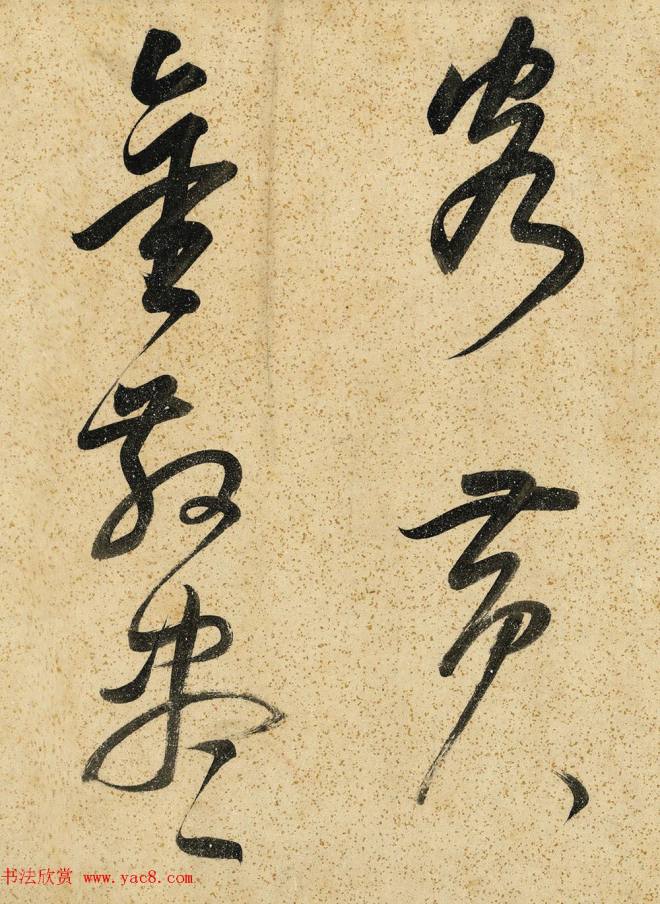 客黃
金散盡
书法欣赏 www.yac8.com